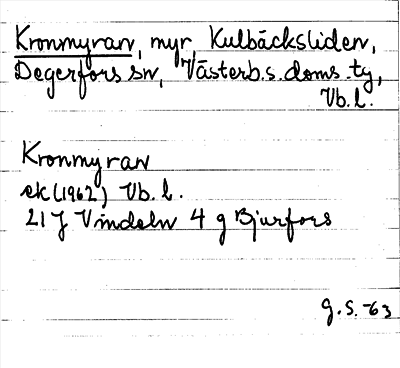 Kronmyran, myr, Kulbäcksliden,
Degerfors sn, Västerb.s.doms.tg,
Vb.l.
Kronmyran
ek (1962) Vb.l.
21J Vindeln 4 g Bjurfors
G.S.-63